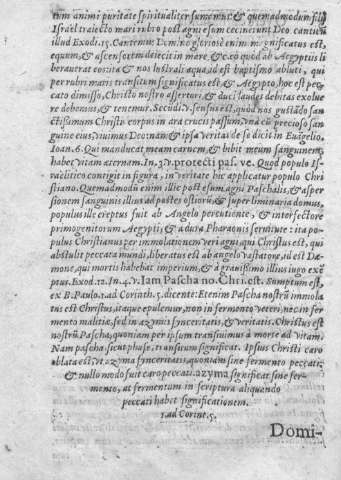 cum animi puritate spiritualiter sumemus: & quemadmodum filij
Israel traiecto mari rubro post agni esum cecinerunt Deo canticum
illud Exod.15. Cantemus Domino gloriose enim magnificatus est,
equum, & ascensorem deiecit in mare &c. eo quod ab Aegyptiis li
berauerat eos: ita & nos lustrali aqua, id est baptismo abluti, qui
per rubri maris transitum significatus est, & Aegypto, hoc est pec
cato dimisso, Christo nostro assertori, & duci laudes debitas exolue
re debemus, & tenemur. Secundi v. sensus est, quod nos gustando san
ctissimum Christi corpus in ara crucis passum, vna cum precioso san
guine eius, viuimus Deo: nam & ipsa veritas de se dicit in Euãgelio,
Ioan.6. Qui manducat meam carnem, & bibit meum sanguinem,
habet vitam æternam. In .3. v. protecti pas. ve. Quod populo Is-
raëlitico contigit in figura, in veritate hic applicatur populo Chri
stiano. Quemadmodũ enim illic post esum agni Paschalis, & asper
sionem sanguinis illius ad postes ostiorũ, & superliminaria domus,
populus ille ereptus fuit ab Angelo percutiente, & interfectore
primogenitorum Aegyptij, & a dura Pharaonis seruitute: ita po
pulus Christianus per immolationem veri agni, qui Christus est, qui
abstulit peccata mundi, liberatus est ab angelo vastatore, id est Dæ
mone, qui mortis habebat imperium, & à grauissimo illius iugo exẽ
ptus. Exod.12. In .4. v. Iam Pascha no. Chri. est. Sumptum est,
ex B. Paulo.1. ad Corinth.5. dicente: Etenim Pascha nostrũ immola
tus est Christus, itaque epulemur, non in fermento veteri, nec in fer
mento malitiæ, sed in azymis synceritatis, & veritatis. Christus est
nostrũ Pascha, quoniam per ipsum transiuimus à morte ad vitam.
Nam pascha siue phase, transitum significat. Ipsius Christi caro
oblata est, vt azyma synceritatis, quoniam sine fermento peccati,
& nullo modo fuit caro peccati. azyma significat sine fer-
mento, at fermentum in scriptura aliquando
peccati habet significationem.
1. ad Corint.5.
Domi-